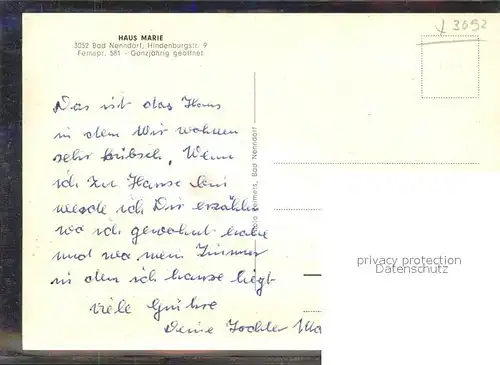 HAUS MARIE
3052 Bad Nenndorf, Hindenburgstr. 9
Fernspr. 581 - Ganzjährig geöffnet
3052
Das ist das Haus
in dem Wir wohnen
sehr hübsch, Wenn
ich zu Hause bin
werde ich Dir erzählen
wo ich gewohnt habe
und wo mein Zimmer
in dem ich hause liegt
viele Grüße
Deine Tochter
Bad Nenndorf
privacy protection
Datenschutz